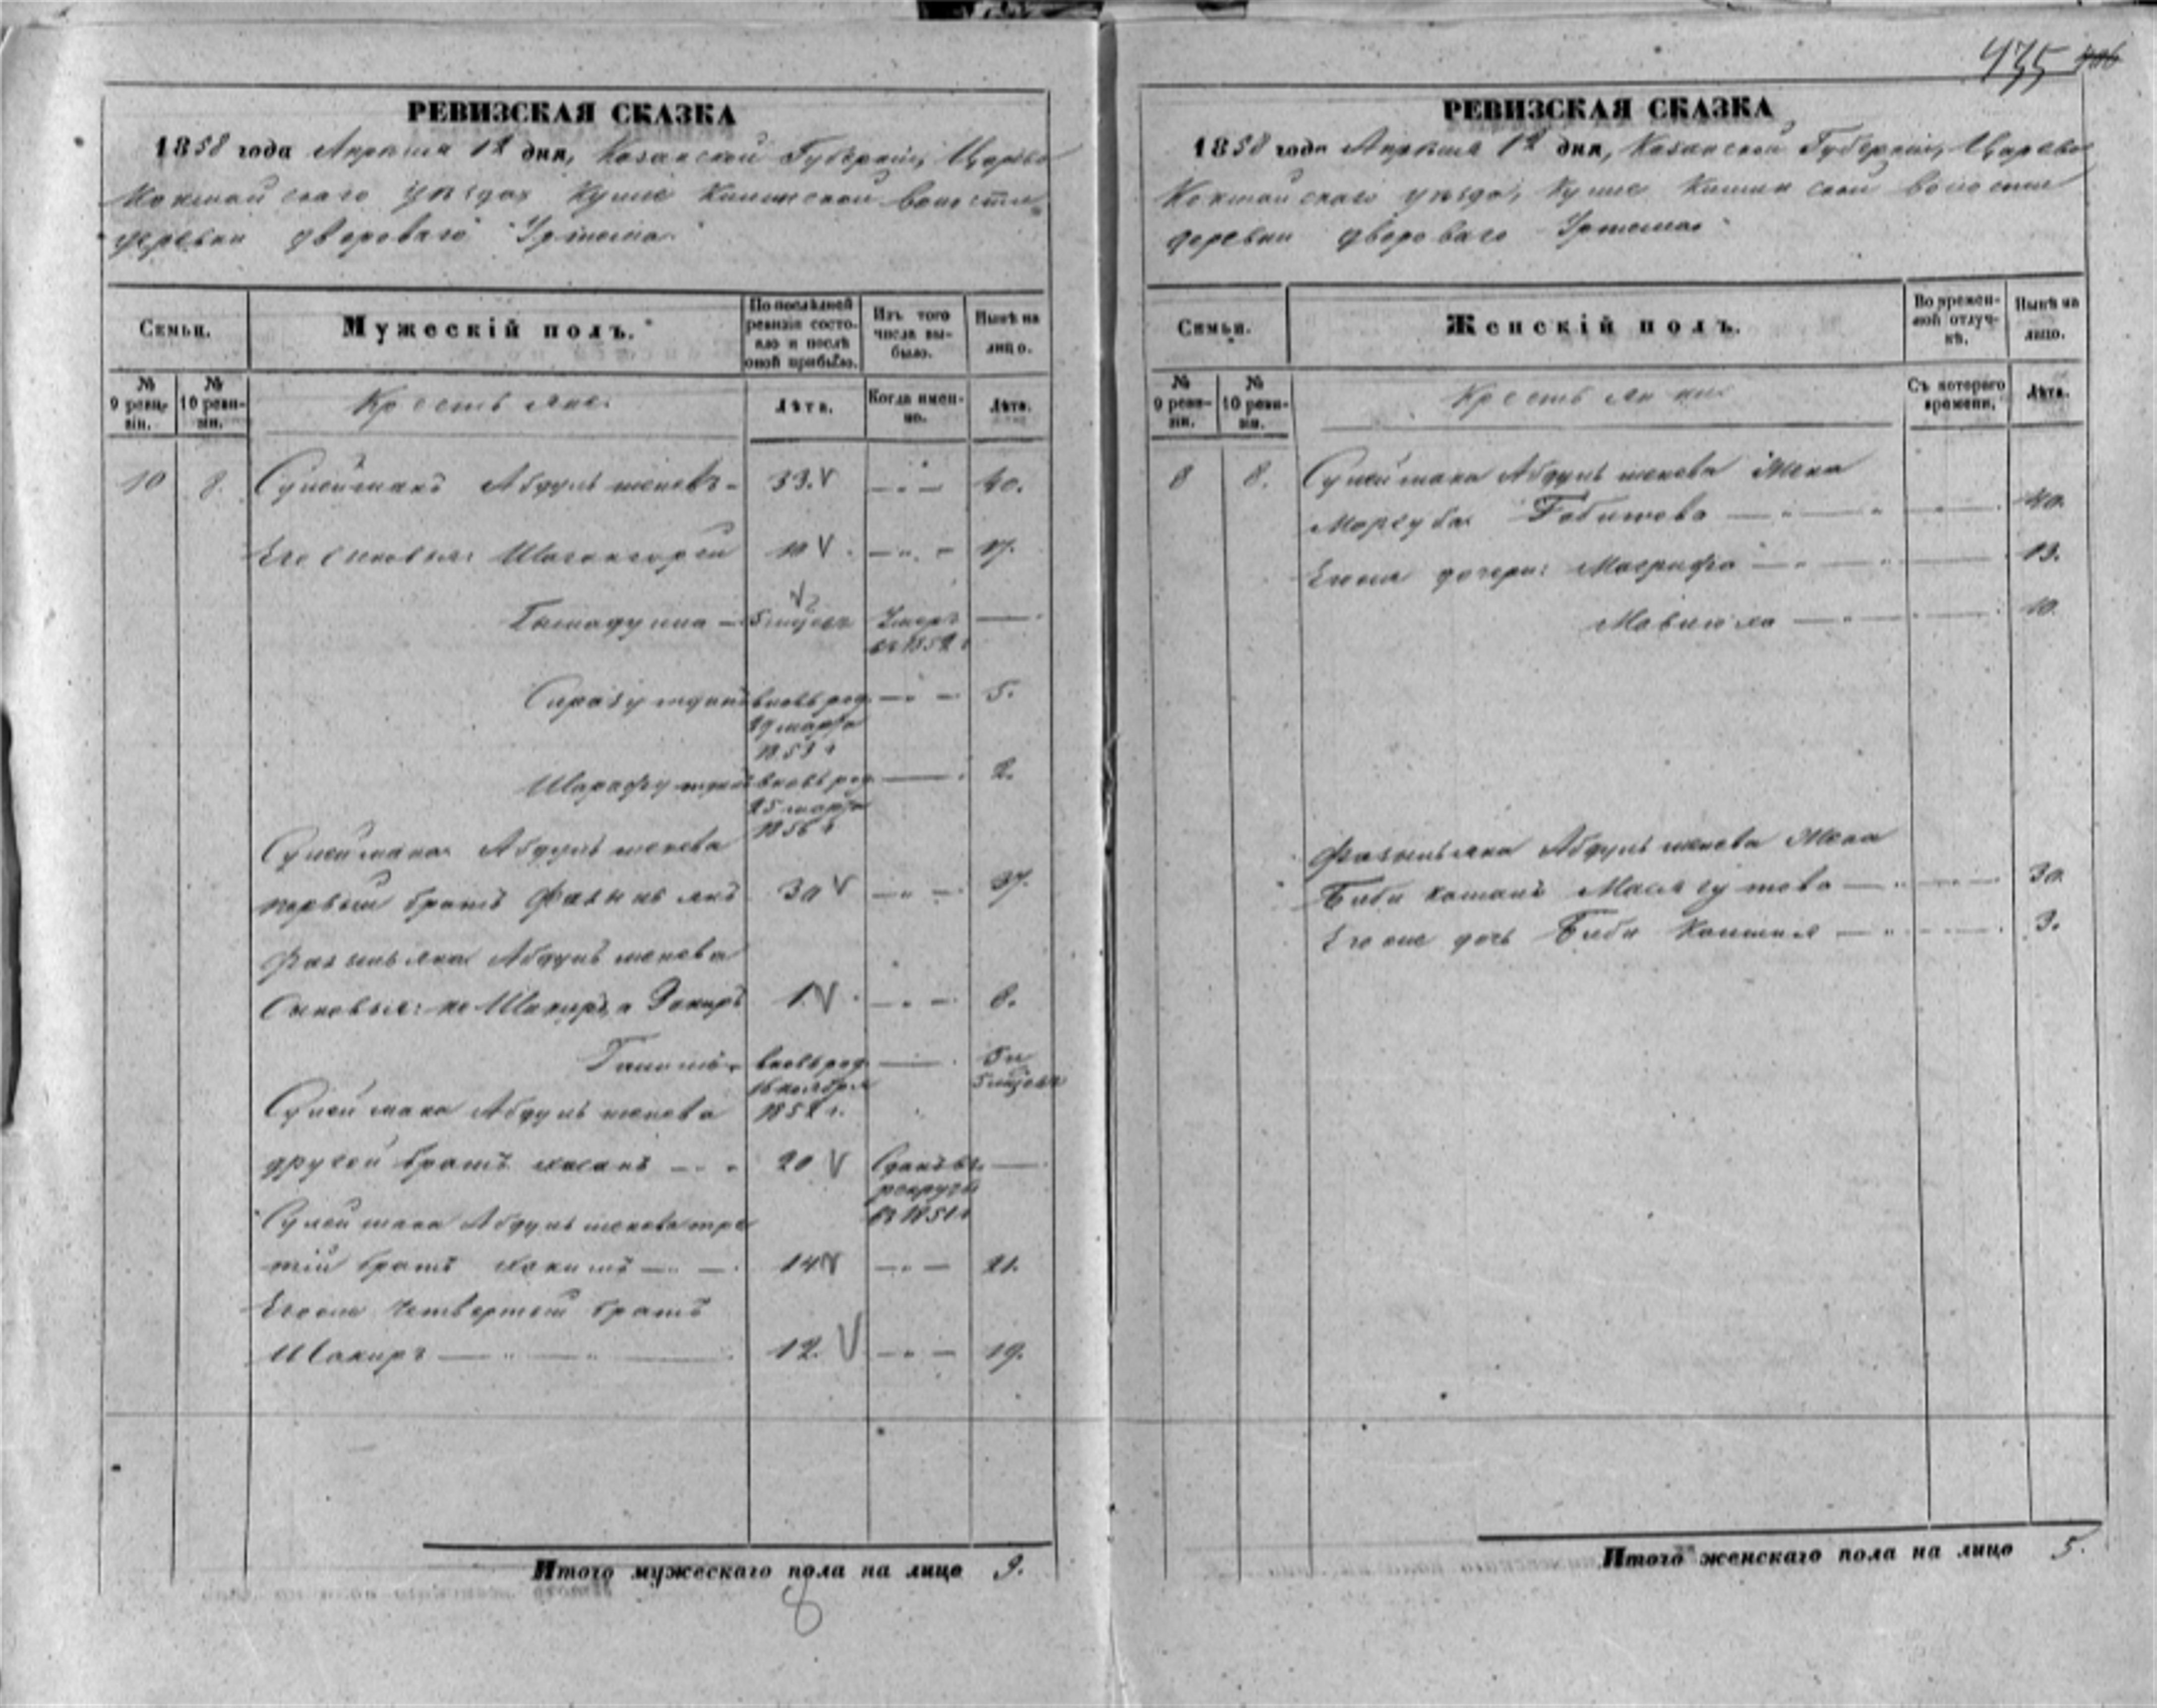 435
РЕВИЗСКАЯ СКАЗКА
1858 года Апреля 12 дня, Казанской Губерніи, Царево
Кокшайскаго уѣзда Кульле Киминской волости
деревни дворового Уртема
Семьи.
Мужескій полъ.
По послѣдней ревизіи состояло и послѣ оной прибыло.
Изъ того числа выбыло.
Нынѣ на лицо.
№ 9 ревизіи.
№ 10 ревизіи.
Крестьяне.
Лѣта.
Когда именно.
Лѣта.
10 8. Сулейманъ Абдулъменевъ 33. 40.
Его сыновья: Шагангарей 10 17.
5 мѣсяц Умеръ въ 1852 г
вновь род. 29 марта 1853 г 5.
вновь род. 25 марта 1856 г 2.
Сулеймана Абдулъменева
первый братъ Фазульянъ 30 37.
Фазульяна Абдулъменева
Сыновья: не Шакиръ, а Закиръ 1. 8.
вновь род. 16 ноября 1852 г. 5 и 5 мѣсяц
Сулеймана Абдулъменева
другой братъ Хасанъ 20 Сданъ въ рекруты въ 1851 г
Сулеймана Абдулъменева тре
тій братъ Хакимъ 14 21.
Его же четвертый братъ
Шакиръ 12. 19.
Итого мужескаго пола на лицо 9.
8
РЕВИЗСКАЯ СКАЗКА
1858 года Апреля 12 дня, Казанской Губерніи, Царево
Кокшайскаго уѣзда, Кульле Киминской волости
деревни дворового Уртема
Семьи.
Женскій полъ.
Во временной отлучкѣ.
Нынѣ на лицо.
№ 9 ревизіи.
№ 10 ревизіи.
Крестьянки
Съ котораго времени.
Лѣта.
8 8. Сулеймана Абдулъменева Жена
Моргуба Габитова 40.
Его же дочери: Магрифа 13.
10.
Фазульяна Абдулъменева Жена
Биби 30.
Его же дочь Биби 3.
Итого женскаго пола на лицо 5.